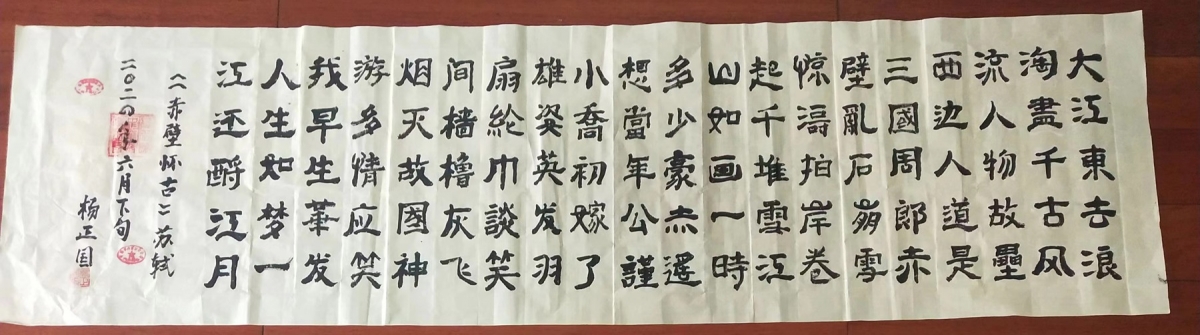 大江東去浪
淘盡千古风
流人物故壘
西边人道是
三國周郎赤
壁亂石崩雪
惊濤拍岸卷
起千堆雪江
山如画一時
多少豪杰遥
想當年公謹
小喬初嫁了
雄姿英发羽
扇纶巾談笑
间樯櫓灰飞
烟灭故國神
游多情应笑
我早生華发
人生如梦一
江还酹江月
《赤壁怀古》苏轼
二0二四年六月下旬
杨正国